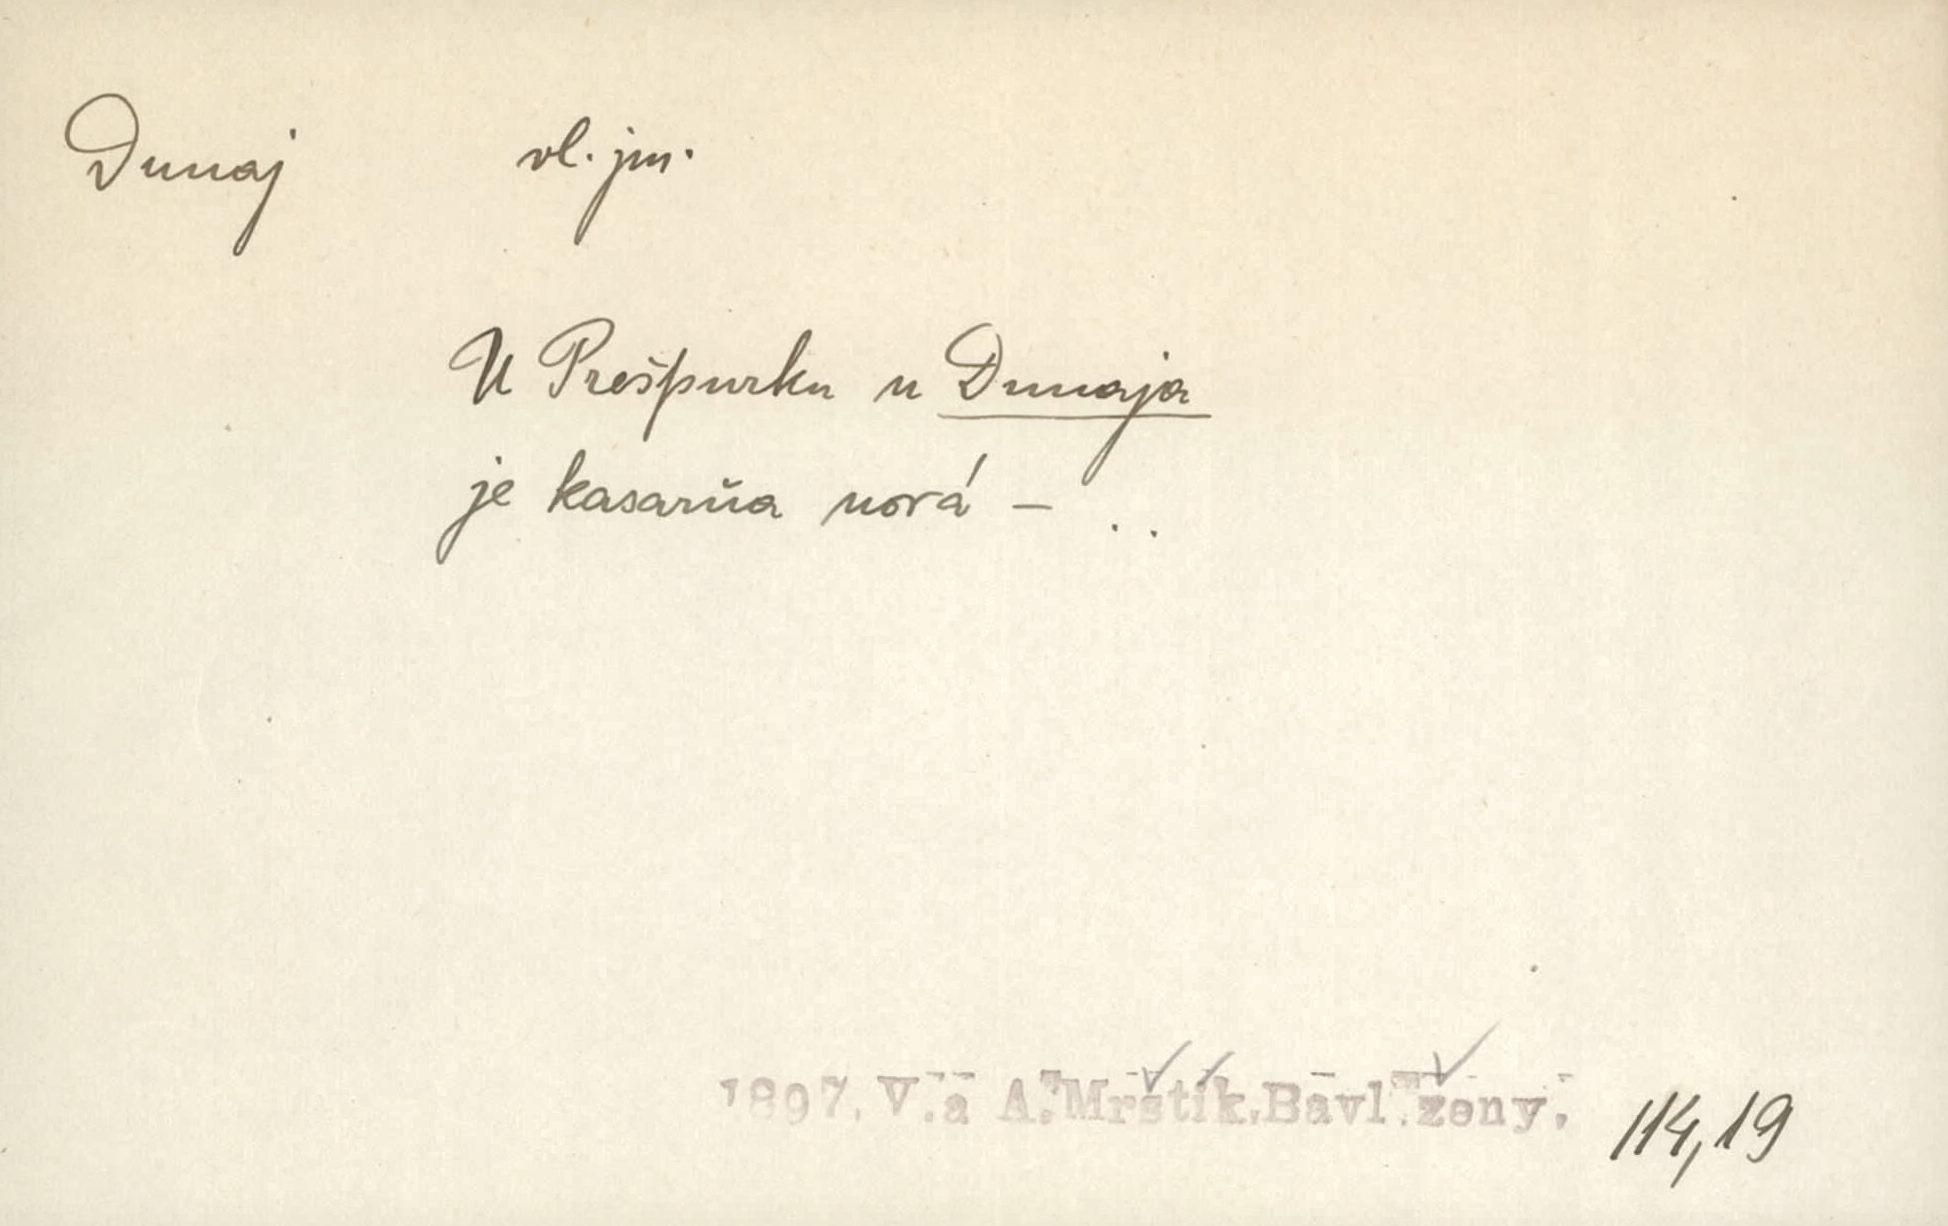 Dunaj vl. jm.
U Prešpurku u Dunaja
je kasarňa nová – ..
1897. V. a A. Mrštík, Bavl. ženy. 114,19